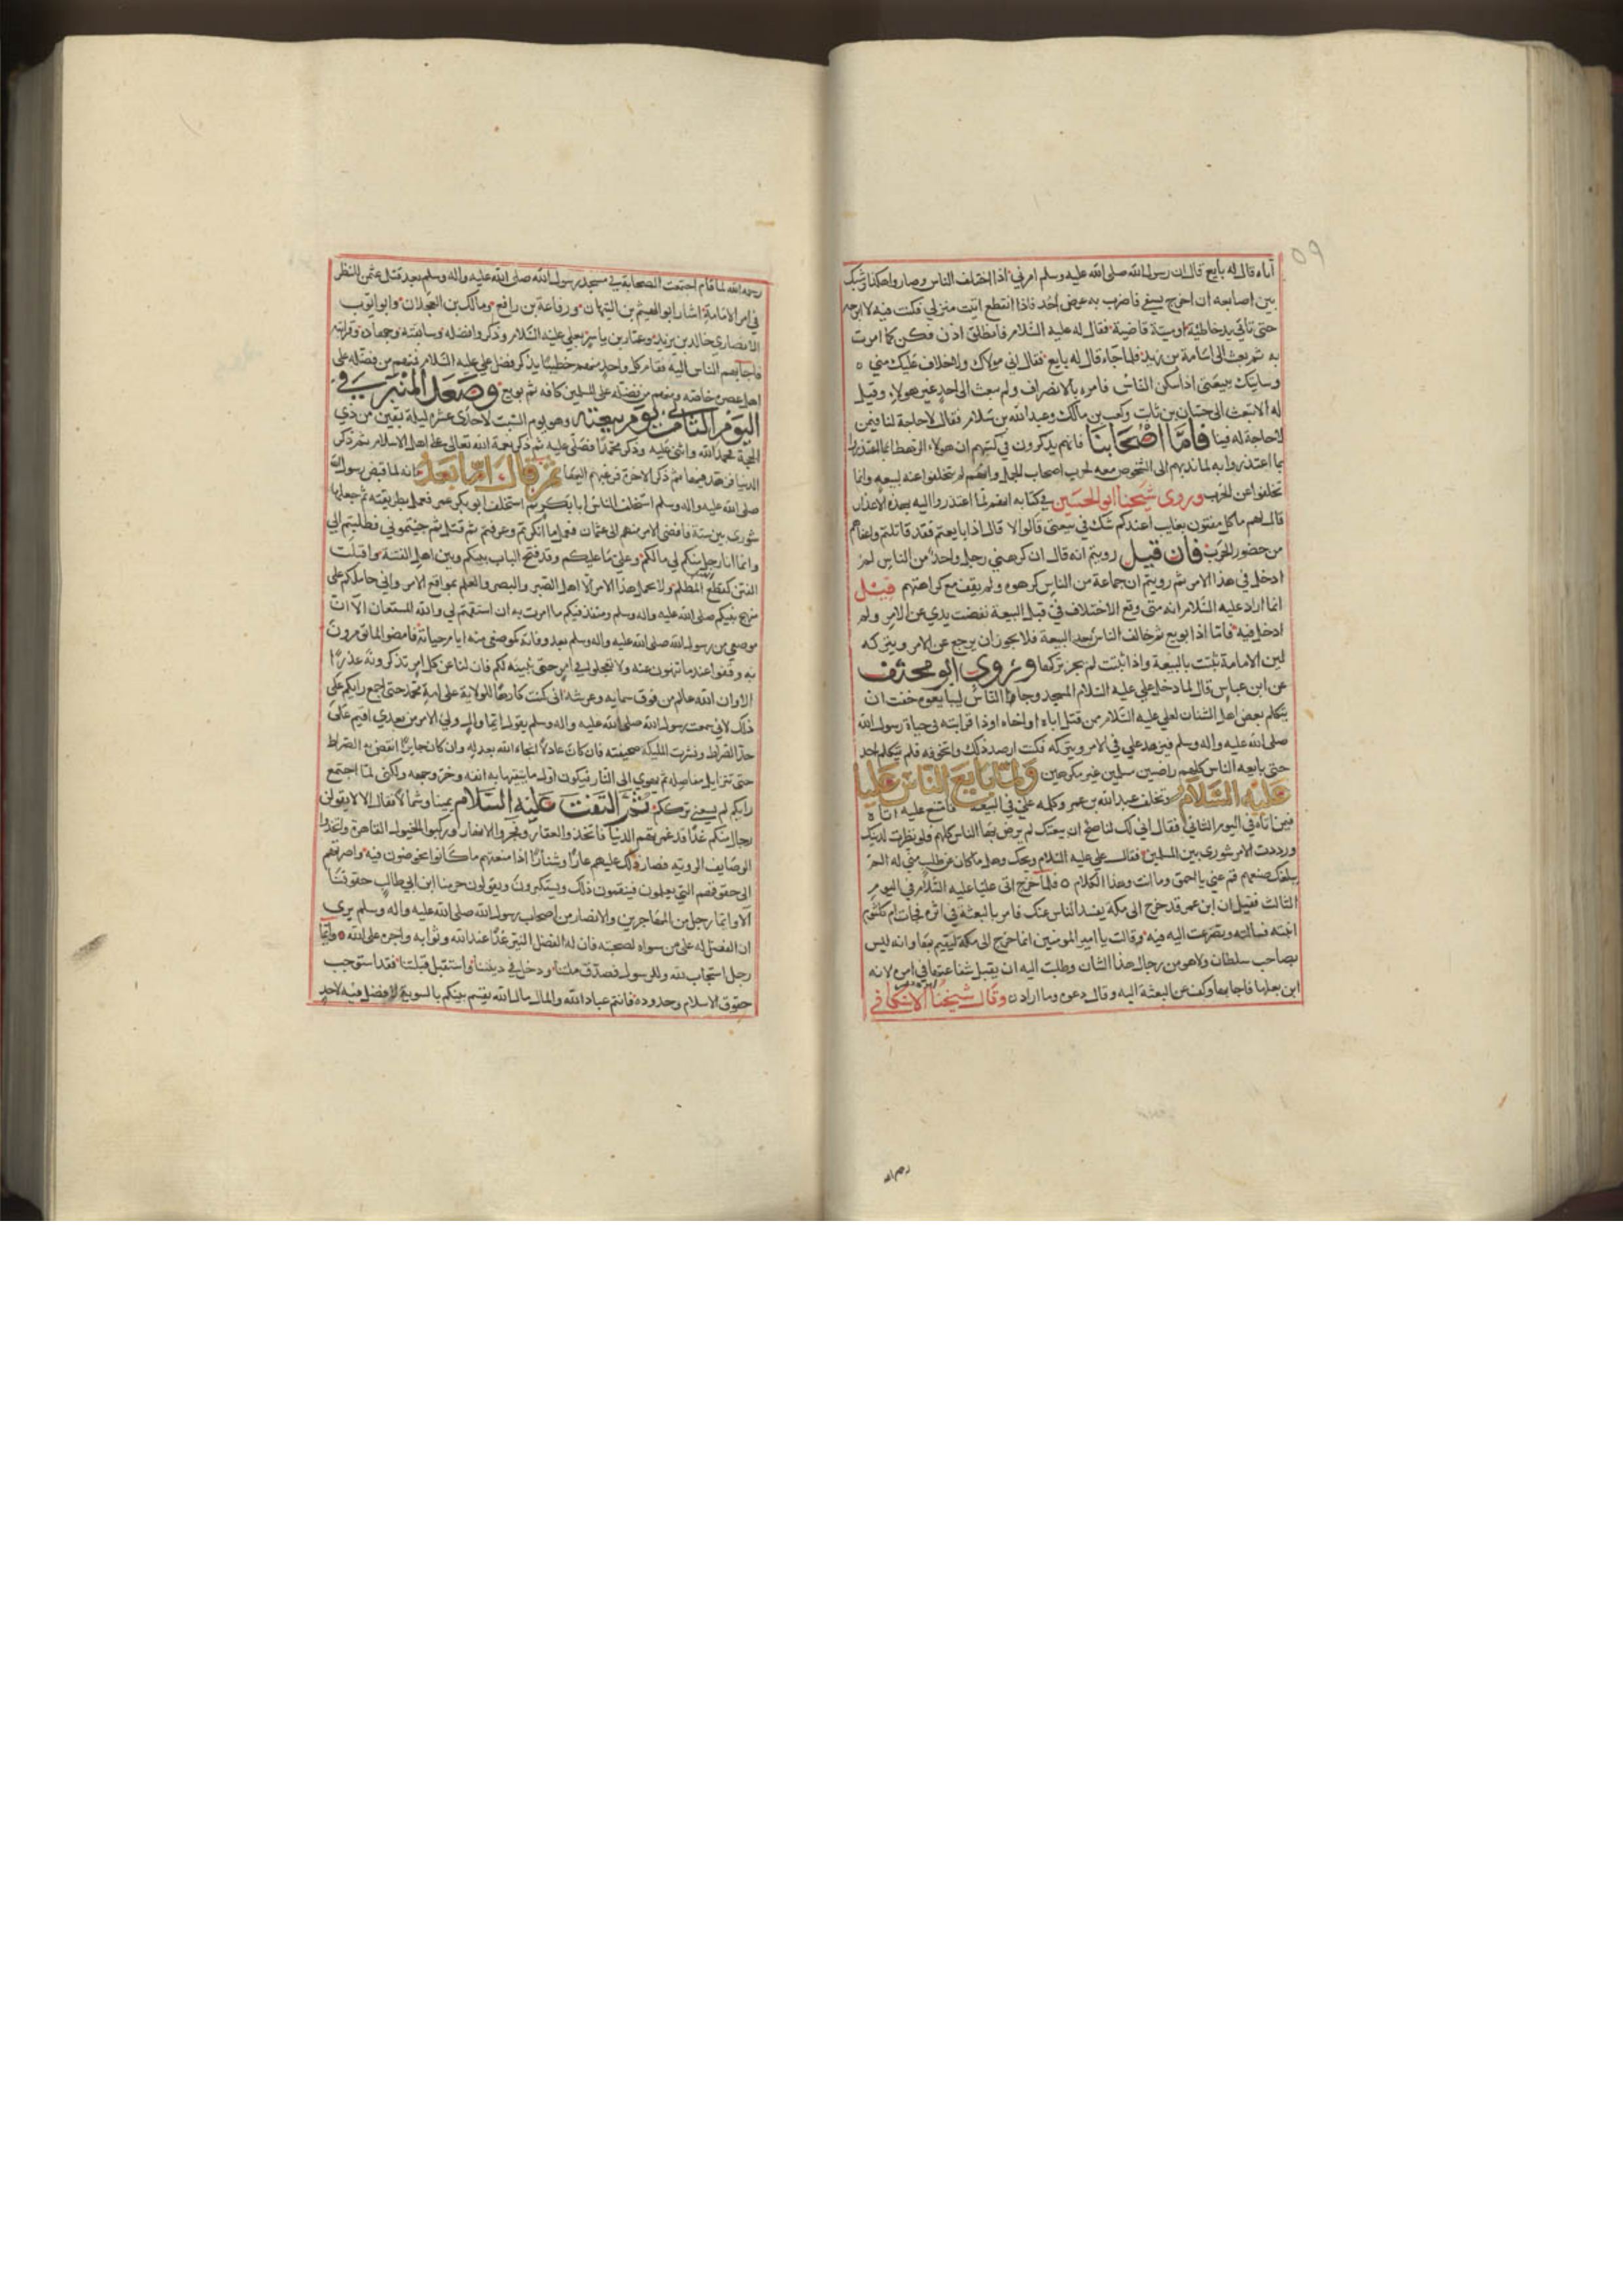 ٥٩
أتاه قال له بايع قال ان رسول الله صلى الله عليه وسلم امرني اذا اختلف الناس وصاروا هكذا وشبك
بين اصابعه ان اخرج بسيفي فاضرب به عرض احد فاذا انقطع اتيت منزلي فكنت فيه لا ابرحه
حتى تاتي يد خاطئة او ميتة قاضية فقال له عليه السلام فانطلق اذن فكن كما امرت
به ثم بعث الى اسامة بن زيد فلما جاء قال له بايع فقال اني مولاك ولا خلاف عليك مني
وسايتك ببيعتي اذا سكن الناس فامره بالانصراف ولم يبعث الى احد غير هولاء وقيل
له الا تبعث الى حسان بن ثابت وكعب بن مالك وعبد الله بن سلام فقال لا حاجة لنا فيمن
لا حاجة له فينا فاما اصحابنا فانهم يذكرون في كتبهم ان هولاء الرهط انما اعتذروا
بما اعتذروا به لما ندبهم الى الشخوص معه لحرب اصحاب الجمل وانهم لم يتخلفوا عنه لبيعه وانما
تخلفوا عن الحرب وروى شيخنا ابو الحسين في كتابه انهم لما اعتذروا اليه بهذه الاعذار
قال لهم ما كل مفتون يعاتب اعندكم شك في بيعتي قالوا لا قال اذا بايعتم فقد قاتلتم واعفاهم
من حضور الحرب فان قيل رويتم انه قال ان كرهني رجل واحد من الناس لم
ادخل في هذا الامر ثم رويتم ان جماعة من الناس كرهوه ولم يقف مع كراهتهم قيل
انما اراد عليه السلام انه متى وقع الاختلاف في قبل البيعة نفضت يدي عن الامر ولم
ادخل فيه فاما اذا بويع ثم خالف الناس بعد البيعة فلا يجوز ان يرجع عن الامر ويتركه
لين الامامة تثبت بالبيعة واذا ثبتت لم يجز تركها وروى ابو مخنف
عن ابن عباس قال لما دخل علي عليه السلام المسجد وجاء الناس ليبايعوه خفت ان
يتكلم بعض اهل الشنان لعلي عليه السلام من قتل اباه او اخاه او ذا قرابته في حياة رسول الله
صلى الله عليه واله وسلم فيزهد علي في الامر ويتركه فكنت ارصد ذلك واتخوفه فلم يتكلم احد
حتى بايعه الناس كلهم راضين مسلمين غير مكرهين ولما بايع الناس عليا
عليه السلام وتخلف عبد الله بن عمر وكلمه علي في البيعه فامتنع عليه اتاه
فين اتاه في اليوم الثاني فقال اني لك لناصح ان بيعتك لم يرض بها الناس كلهم ولو نظرت لدينك
ورددت الامر شورى بين المسلمين فقال علي عليه السلام ويحك وهل ما كان عن طلب مني له الم
يبلغك صنيعهم قم عني يا احمق وما انت وهذا الكلام ٥ فلما خرج اتى عليا عليه السلام في اليوم
الثالث فقيل ان ابن عمر قد خرج الى مكة يفسد الناس عنك فامر بالبعثة في اثره فجاءت ام كلثوم
ابنته فسالته وتضرعت اليه فيه وقالت يا امير المومنين انما خرج الى مكة ليقيم بها وانه ليس
بصاحب سلطان ولا هو من رجال هذا الشان وطلبت اليه ان يقبل شفاعتها في امره لانه
ابن بعلها فاجابها وكف عن البعثة اليه وقال دعوه وما اراده وقال شيخنا الاسكافي
رحمه الله
رحمه الله لما قام اجتمعت الصحابة في مسجد رسول الله صلى الله عليه واله وسلم بعد قتل عثمن للنظر
في امر الامامة اشار ابو الهيثم بن التيهان ورفاعة بن رافع ومالك بن العجلان وابو ايوب
الانصاري خالد بن يزيد وعمار بن ياسر بعلي عليه السلام وذكروا فضله وسابقته وجهاده وقرابته
فاجابهم الناس اليه فقام كل واحد منهم خطيبا يذكر فضل علي عليه السلام فمنهم من فضله على
اهل عصره خاصة ومنهم من فضله على المسلمين كافه ثم بويع وصعد المنبر في
اليوم الثاني من يوم بيعته وهو يوم السبت لاحدى عشره ليلة بقين من ذي
الحجة فحمد الله واثنى عليه وذكر محمدا فصلى عليه ثم ذكر نعمة الله تعالى على اهل الاسلام ثم ذكر
الدنيا فزهدهم فيها ثم ذكر الاخرة فرغبهم اليها ثم قال اما بعد فانه لما قبض رسول الله
صلى الله عليه واله وسلم استخلف الناس ابا بكر ثم استخلف ابو بكر عمر فعمل بطريقته ثم جعلها
شورى بين ستة فافضى الامر منهم الى عثمان فعمل ما انكرتم وعرفتم ثم قتل ثم جيتموني فطلبتم الي
وانما انا رجل منكم لي ما لكم وعلي ما عليكم وقد فتح الباب بينكم وبين اهل القبلة واقبلت
الفتن كقطع الليل المظلم ولا يحمل هذا الامر الا اهل الصبر والبصر والعلم بمواقع الامر واني حاملكم على
منهج نبيكم صلى الله عليه واله وسلم ومنفذ فيكم ما امرت به ان استقمتم لي والله المستعان الا ان
موضعي من رسول الله صلى الله عليه واله وسلم بعد وفاته كموضعي منه ايام حياته فامضوا لما تومرون
به وقفوا عند ما تنهون عنه ولا تعجلوا في امر حتى نبينه لكم فان لنا عن كل امر تذكرونه عذرا
الا وان الله عالم من فوق سمايه وعرشه اني كنت كارها للولاية على امة محمد حتى اجمع رايكم على
ذلك لاني سمعت رسول الله صلى الله عليه واله وسلم يقول ايما وال ولي الامر من بعدي اقيم على
حد الصراط ونشرت المليكة صحيفته فان كان عادلا انجاه الله بعدله وان كان جايرا انتقض به الصراط
حتى تتزايل مفاصله ثم يهوي الى النار فيكون اول ما يتقيها به انفه وحر وجهه ولكني لما اجتمع
رايكم لم يسعني ترككم ثم التفت عليه السلام يمينا وشمالا فقال الا لا يقولن
رجال منكم غدا قد غمرتهم الدنيا فاتخذوا العقار وفجروا الانهار وركبوا الخيول الفارهة واتخذوا
الوصايف الروقه فصار ذلك عليهم عارا وشنارا اذا ما منعتهم ما كانوا يخوضون فيه واصرتهم
الى حقوقهم التي يعلمون فينقمون ذلك ويستكبرون ويقولون حرمنا ابن ابي طالب حقوقنا
الا وايما رجل من المهاجرين والانصار من اصحاب رسول الله صلى الله عليه واله وسلم يرى
ان الفضل له على من سواه لصحبته فان له الفضل النير غدا عند الله وثوابه واجره على الله وايما
رجل استجاب لله وللرسول فصدق ملتنا ودخل في ديننا واستقبل قبلتنا فقد استوجب
حقوق الاسلام وحدوده فانتم عباد الله والمال مال الله يقسم بينكم بالسوية لا فضل فيه لاحد